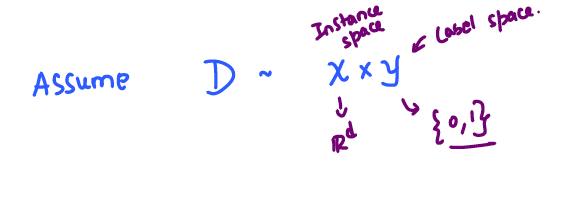 Instance
space
Label space.
Assume D ~ X × Y
ℝᵈ
{0,1}